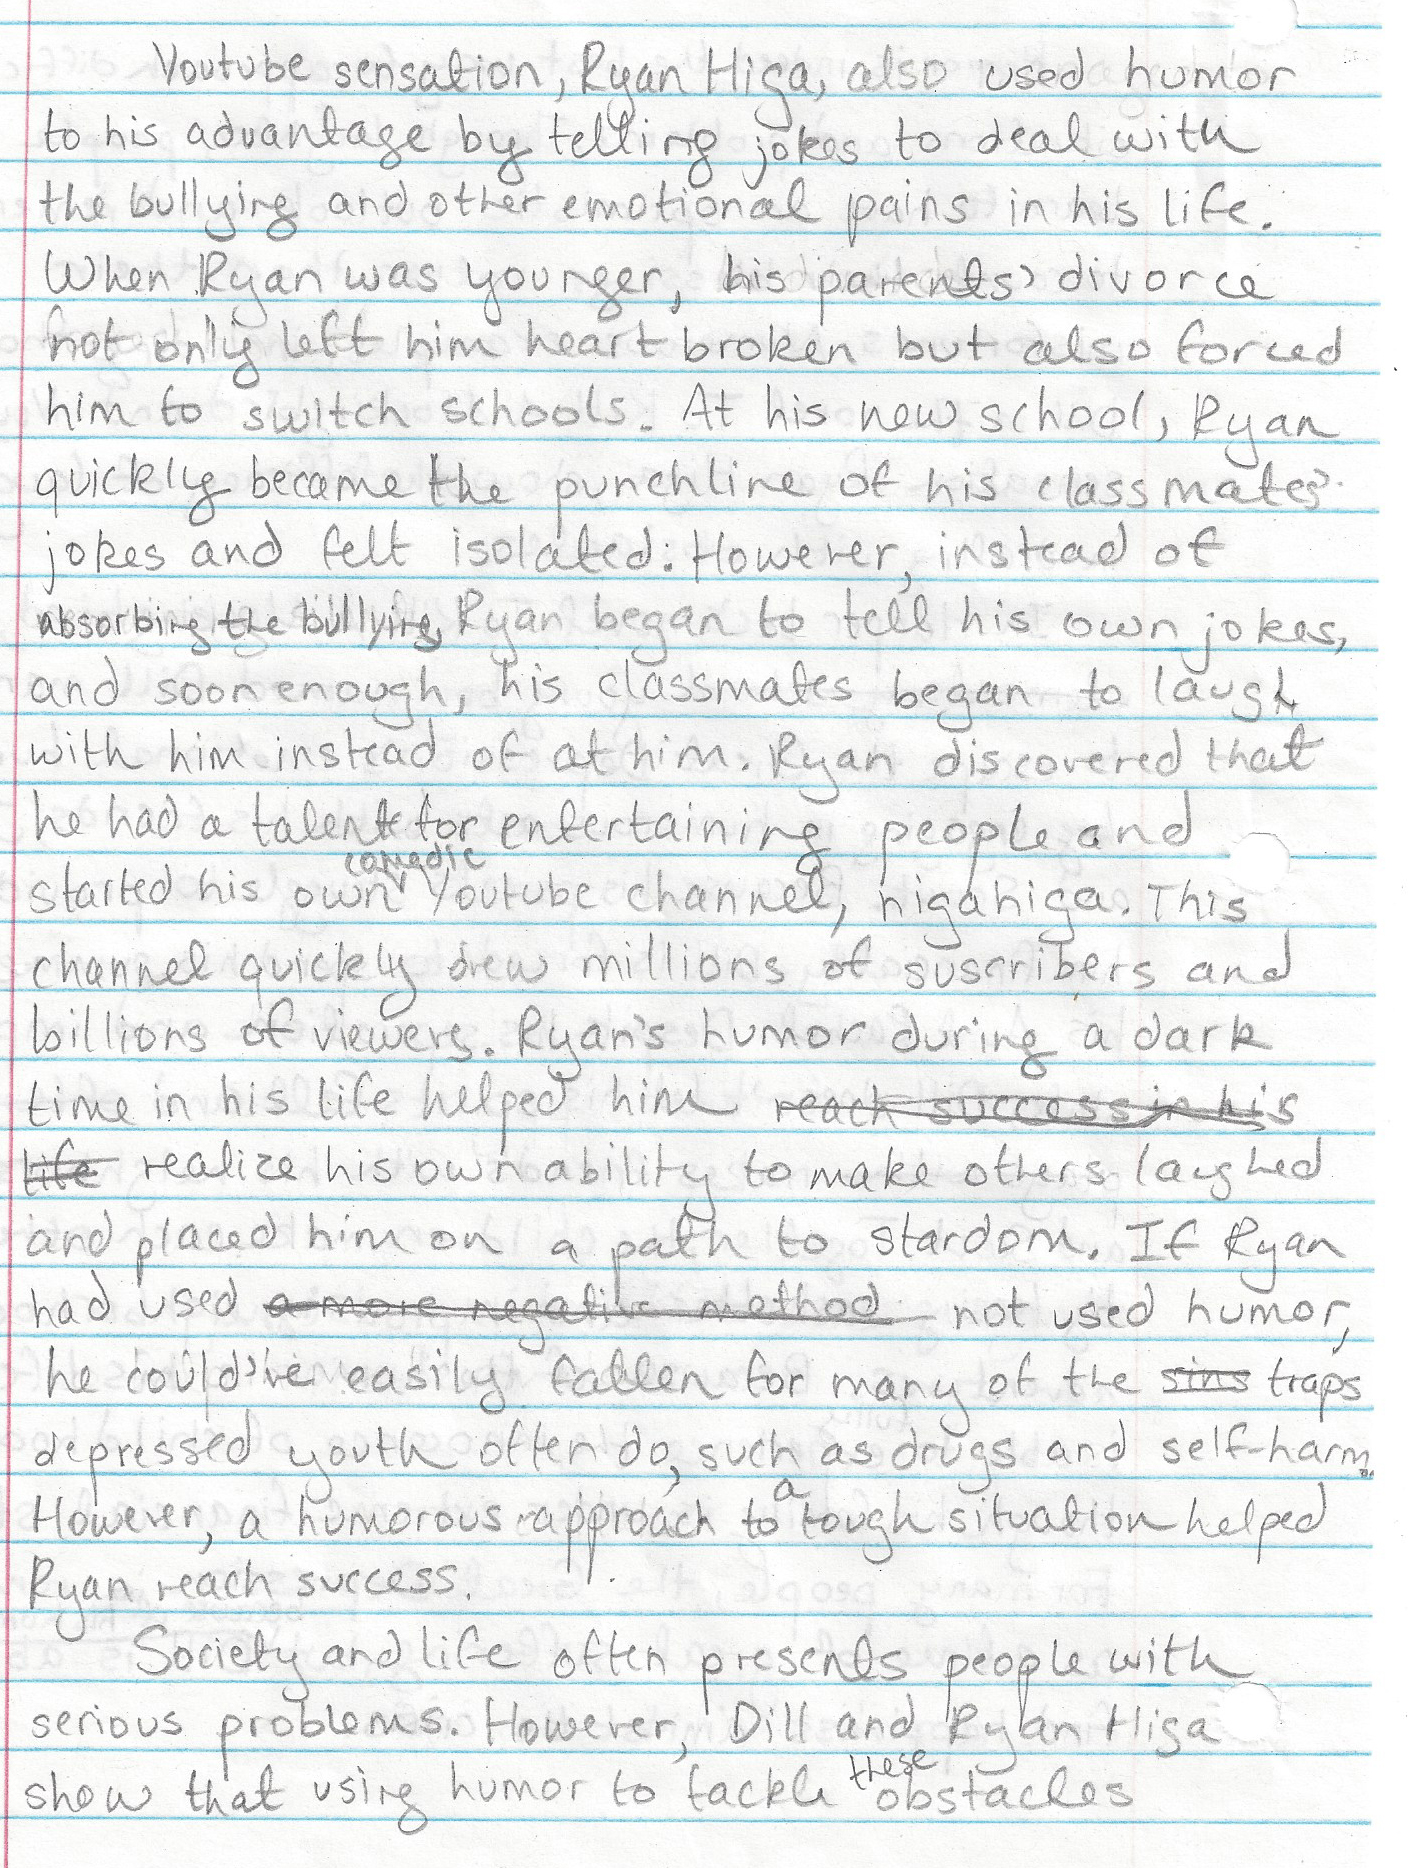 Youtube sensation, Ryan Higa, also used humor
to his advantage by telling jokes to deal with
the bullying and other emotional pains in his life.
When Ryan was younger, his parents' divorce
not only left him heart broken but also forced
him to switch schools. At his new school, Ryan
quickly became the punchline of his classmates'
jokes and felt isolated. However, instead of
absorbing the bullying, Ryan began to tell his own jokes,
and soon enough, his classmates began to laugh
with him instead of at him. Ryan discovered that
he had a talent for entertaining people and
comedic
started his own Youtube channel, nigahiga. This
channel quickly drew millions of suscribers and
billions of viewers. Ryan's humor during a dark
time in his life helped him reach success in his
life realize his own ability to make others laughed
and placed him on a path to stardom. If Ryan
had used a more negative method not used humor,
he could've easily fallen for many of the sins traps
depressed youth often do, such as drugs and self-harm.
a
However, a humorous approach to tough situation helped
Ryan reach success.
Society and life often presents people with
serious problems. However, Dill and Ryan Higa
these
show that using humor to tackle obstacles